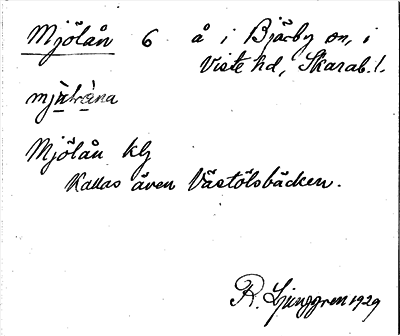 Mjölån 6 å i Bjärby sn, i
Viste hd, Skarab. l.
Mjölån kbj
Kallas även Västölsbäcken.
R. Ljunggren 1929